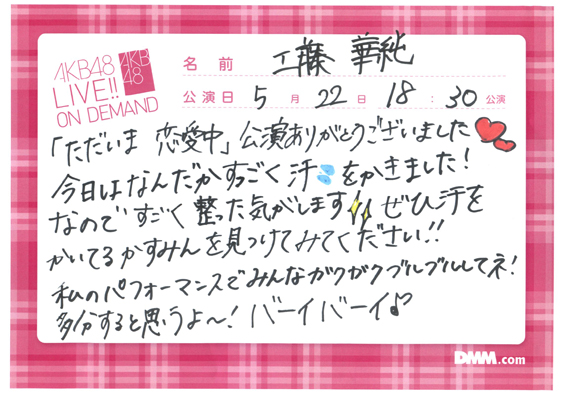 AKB48
LIVE!!
ON DEMAND
AKB
48
名前 工藤 華純
公演日 5月22日 18:30公演
「ただいま 恋愛中」公演ありがとうございました
今日はなんだかすっごく汗をかきました!
なのですごく整った気がします ぜひ汗を
かいてるかすみんを見つけてみてください!!
私のパフォーマンスでみんなガクガクブルブルしてネ!
多分すると思うよ〜! バーイバーイ♪
DMM.com